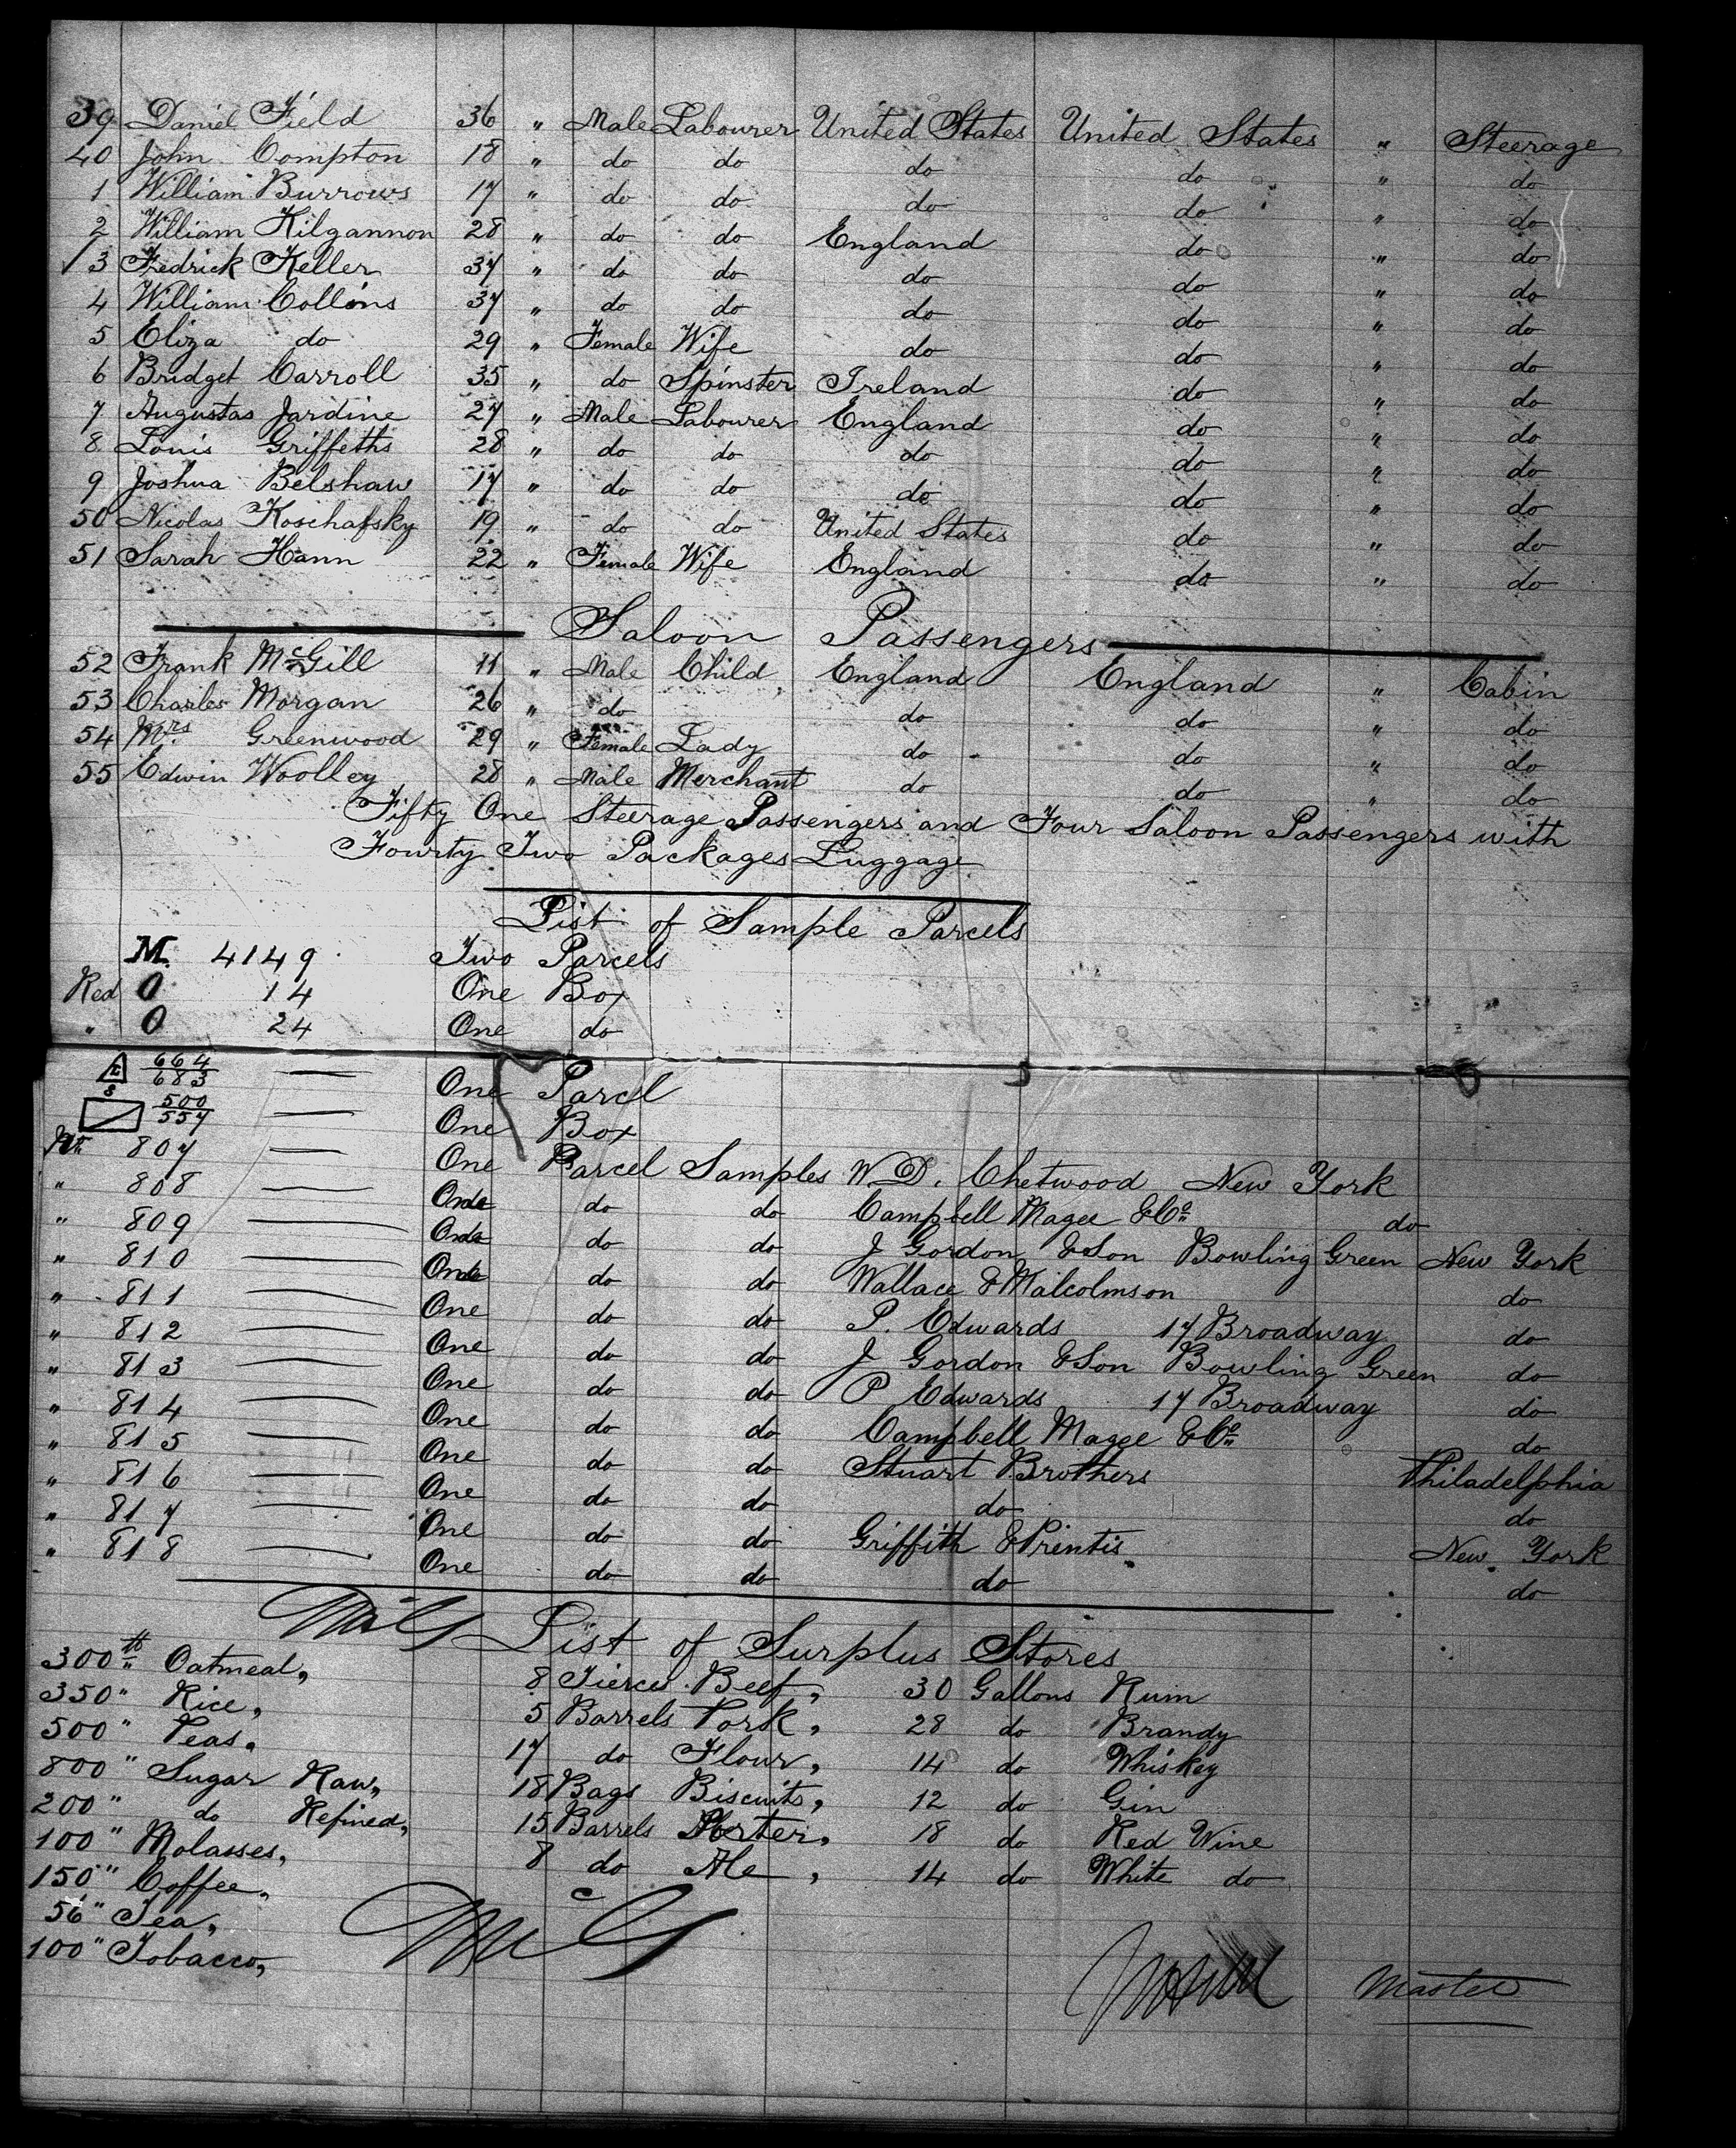 39 Daniel Field 36 " Male Labourer United States United States " Steerage
40 John Compton 18 " do do do do " do
1 William Burrows 17 " do do do do " do
2 William Kilgannon 28 " do do England do " do
✓ 3 Fredrick Keller 37 " do do do do " do
4 William Collins 37 " do do do do " do
5 Eliza do 29 " Female Wife do do " do
6 Bridget Carroll 35 " do Spinster Ireland do " do
7 Augustas Jardine 27 " Male Labourer England do " do
8 Louis Griffeths 28 " do do do do " do
9 Joshua Belshaw 17 " do do do do " do
50 Nicolas Koschafsky 19 " do do United States do " do
51 Sarah Hann 22 " Female Wife England do " do
Saloon Passengers
52 Frank McGill 11 " Male Child England England " Cabin
53 Charles Morgan 26 " do do do " do
54 Mrs Greenwood 29 " Female Lady do do " do
55 Edwin Woolley 28 " Male Merchant do do " do
Fifty One Steerage Passengers and Four Saloon Passengers with
Fourty Two Packages Luggage
List of Sample Parcels
M. 4149 Two Parcels
Red O 14 One Box
" O 24 One do
664/683 One Parcel
500/557 One Box
807 One Parcel Samples W. D. Chetwood New York
" 808 One do do Campbell Magee & Co do
" 809 One do do J Gordon & Son Bowling Green New York
" 810 One do do Wallace & Malcolmson do
" 811 One do do P. Edwards 17 Broadway do
" 812 One do do J Gordon & Son Bowling Green do
" 813 One do do P Edwards 17 Broadway do
" 814 One do do Campbell Magee & Co do
" 815 One do do Stuart Brothers Philadelphia
" 816 One do do do do
" 817 One do do Griffith & Prentis New York
" 818 One do do do do
McG List of Surplus Stores
300 lb Oatmeal, 8 Tierces Beef, 30 Gallons Rum
350 " Rice, 5 Barrels Pork, 28 do Brandy
500 " Peas, 17 do Flour, 14 do Whiskey
800 " Sugar Raw, 18 Bags Biscuits, 12 do Gin
200 " do Refined, 15 Barrels Porter, 18 do Red Wine
100 " Molasses, 8 do Ale, 14 do White do
150 " Coffee,
56 " Tea,
100 " Tobacco,
McG
Master